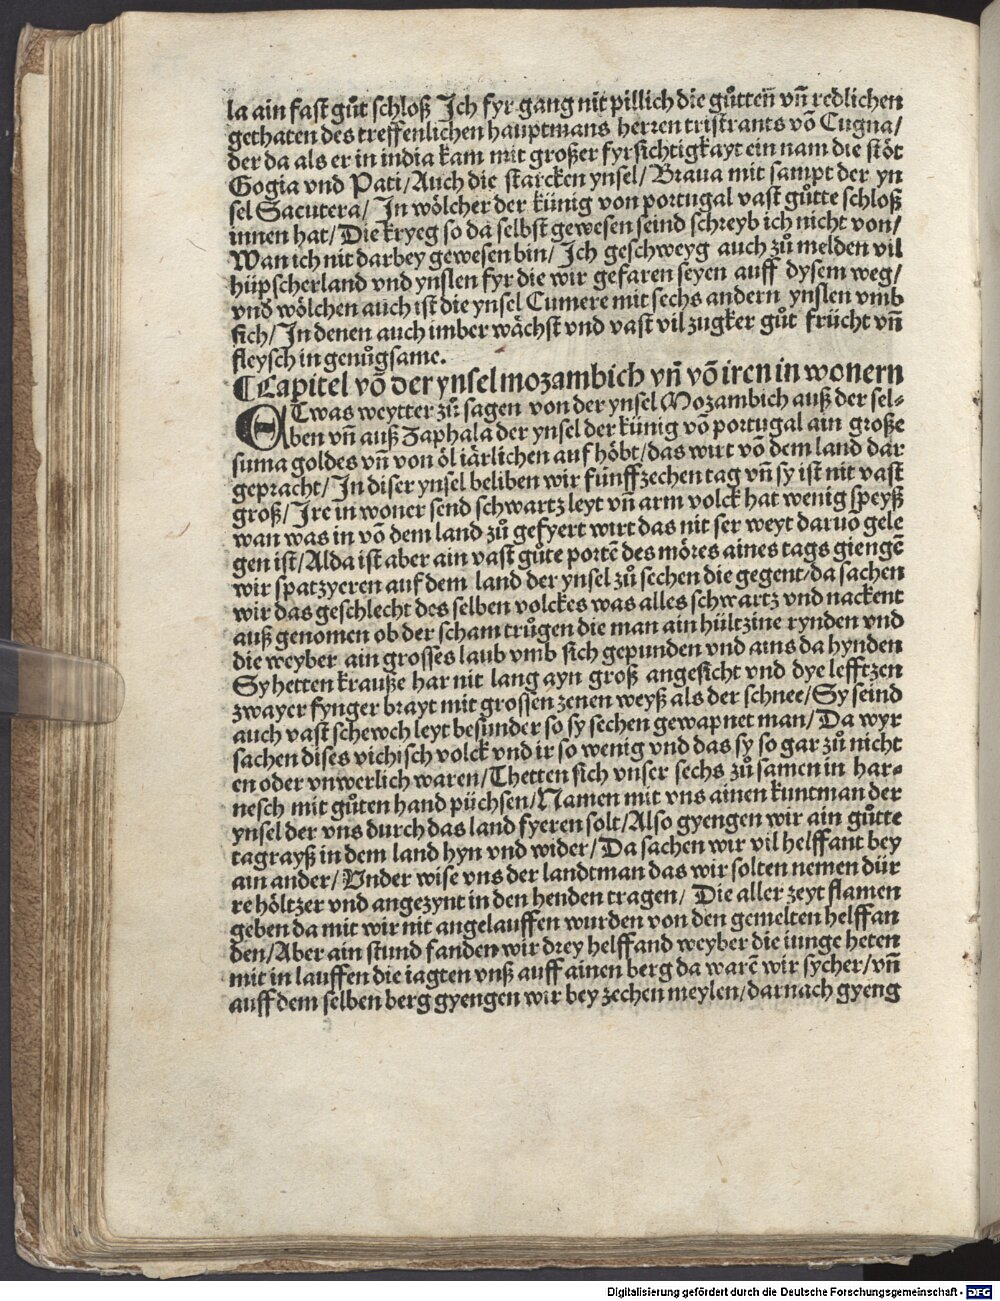 la ain fast gůt schloß Ich fyr gang nit pillich die gůtteñ vñ redlichen
gethaten des treffenlichen hauptmans herren tristrants võ Cugna/
der da als er in india kam mit großer fyrsichtigkayt ein nam die stöt
Gogia vnd Pati/Auch die starcken ynsel/Braua mit sampt der yn
sel Sacutera/ In wölcher der künig von portugal vast gůtte schloß
innen hat/Die kryeg so da selbst gewesen seind schreyb ich nicht von/
Wan ich nit darbey gewesen bin/ Ich geschweyg auch zů melden vil
hüpscherland vnd ynslen fyr die wir gefaren seyen auff dysem weg/
vnd wölchen auch ist die ynsel Cumere mit sechs andern ynslen vmb
sich/In denen auch imber wächst vnd vast vil zugker gůt frücht vñ
fleysch in genůgsame.
¶Capitel võ der ynsel mozambich vñ võ iren in wonern
ETwas weytter zů sagen von der ynsel Mozambich auß der sel-
ben vñ auß Zaphala der ynsel der künig võ portugal ain große
suma goldes vñ von öl iärlichen auf höbt/das wirt võ dem land dar
gepracht/In diser ynsel beliben wir fünffzechen tag vñ sy ist nit vast
groß/Ire in woner send schwartz leyt vñ arm volck hat wenig speyß
wan was in võ dem land zů gefyert wirt das nit ser weyt daruõ gele
gen ist/Alda ist aber ain vast gůte portẽ des möres aines tags giengẽ
wir spatzyeren auf dem land der ynsel zů sechen die gegent/da sachen
wir das geschlecht des selben volckes was alles schwartz vnd nackent
auß genomen ob der scham trůgen die man ain hültzine rynden vnd
die weyber ain grosses laub vmb sich gepunden vnd ains da hynden
Sy hetten krauße har nit lang ayn groß angesicht vnd dye lefftzen
zwayer fynger brayt mit grossen zenen weyß als der schnee/Sy seind
auch vast schewch leyt besunder so sy sechen gewapnet man/Da wyr
sachen dises vichisch volck vnd ir so wenig vnd das sy so gar zů nicht
en oder vnwerlich waren/Thetten sich vnser sechs zů samen in har-
nesch mit gůten hand püchsen/Namen mit vns ainen kuntman der
ynsel der vns durch das land fyeren solt/Also gyengen wir ain gůtte
tagrayß in dem land hyn vnd wider/Da sachen wir vil helffant bey
ain ander/Vnder wise vns der landtman das wir solten nemen dür
re höltzer vnd angezynt in den henden tragen/ Die aller zeyt flamen
geben da mit wir nit angelauffen wurden von den gemelten helffan
den/Aber ain stund fanden wir drey helffand weyber die iunge heten
mit in lauffen die iagten vnß auff ainen berg da warẽ wir sycher/vñ
auff dem selben berg gyengen wir bey zechen meylen/darnach gyeng
Digitalisierung gefördert durch die Deutsche Forschungsgemeinschaft - DFG